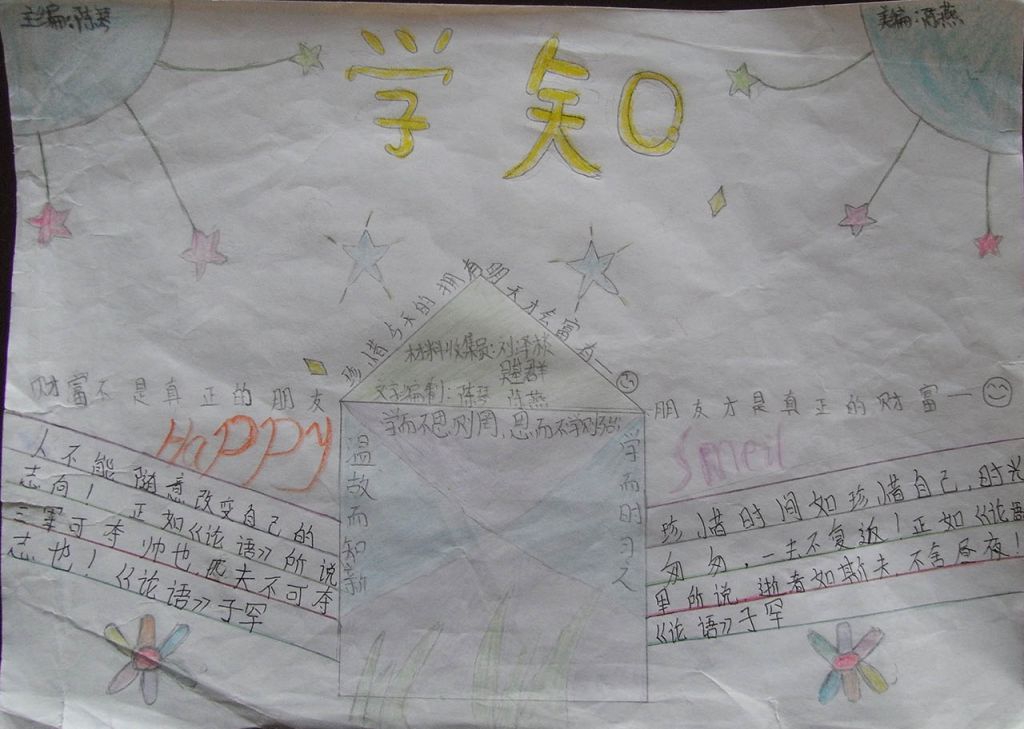 主编:陈琴
美编:陈燕
学知
珍惜与天的拥有
明天才会富有一
材料收集员:刘泽林
文字编制:陈琴
陈燕
财富不是真正的朋友
朋友才是真正的财富一
HaPPY
smeil
学而不思则罔,思而不学则殆
温故而知新
学而时习之
人不能随意改变自己的
志向!正如《论语》所说
三军可夺帅也,匹夫不可夺
志也!《论语》子罕
珍惜时间如珍惜自己,时光
匆匆,一去不复返!正如《论语》
里所说,逝者如斯夫,不舍昼夜!
《论语》子罕